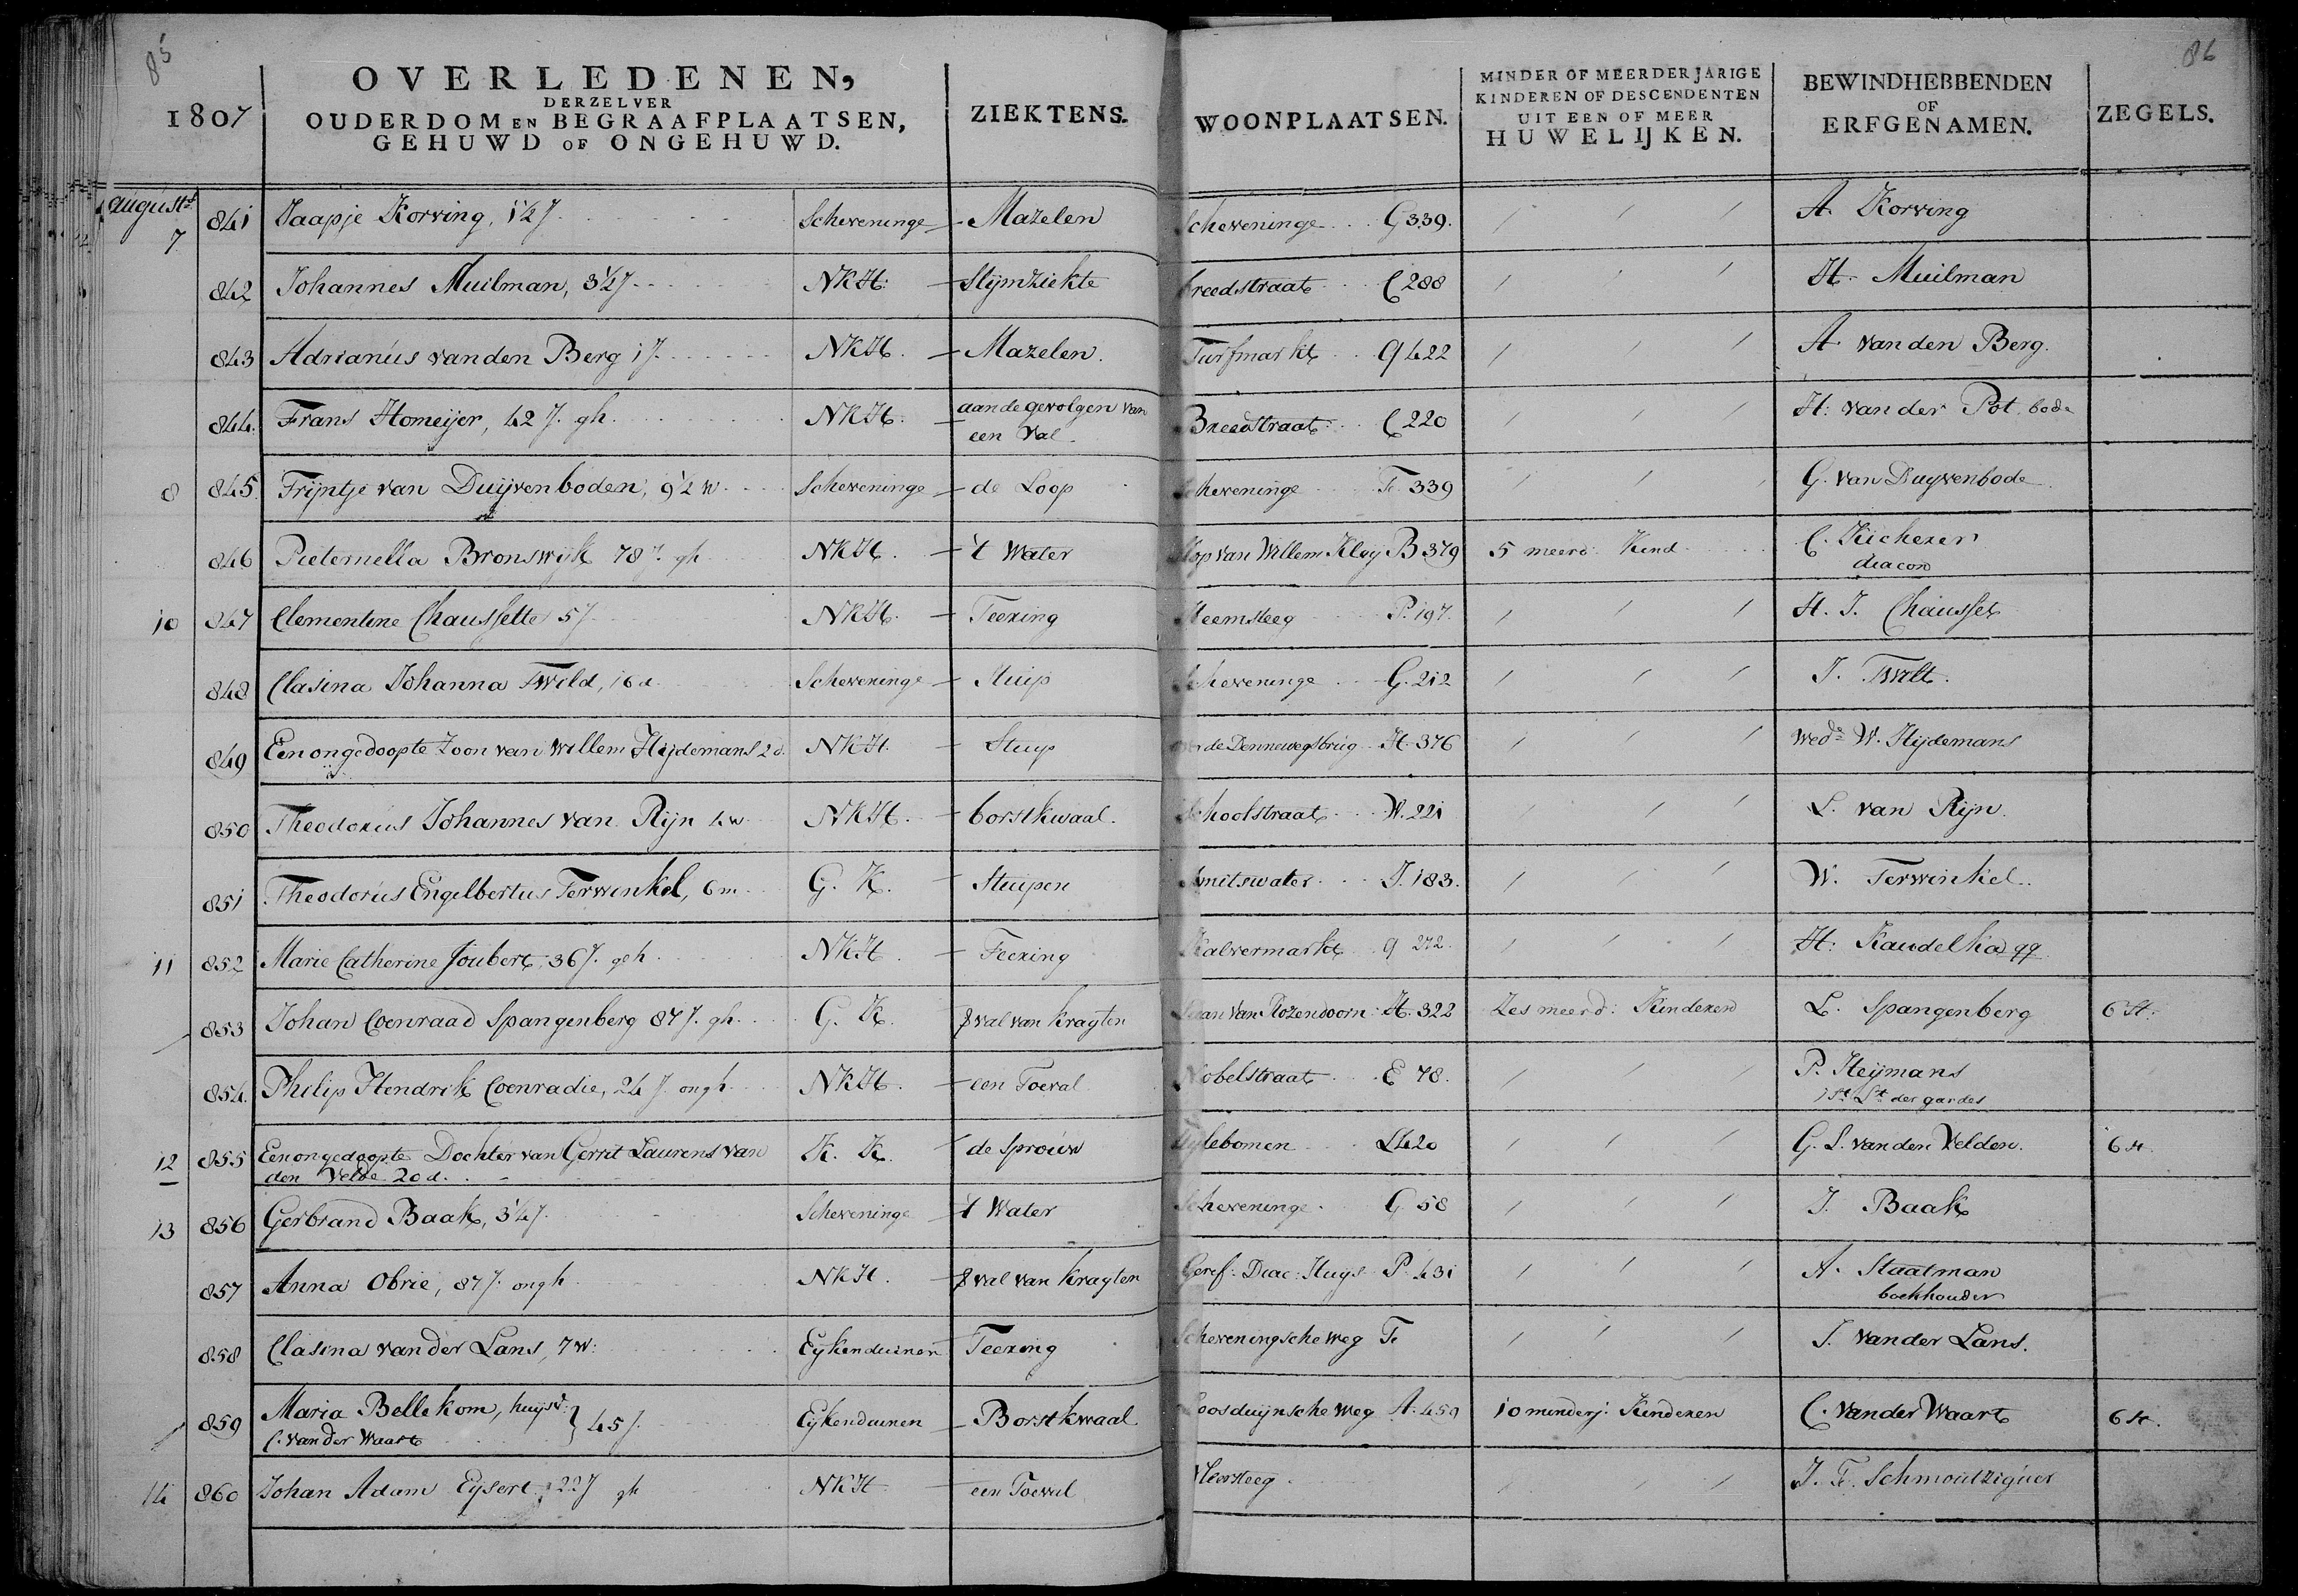 85
86
1807
OVERLEDENEN,
DERZELVER
OUDERDOM EN BEGRAAFPLAATSEN,
GEHUWD OF ONGEHUWD.
ZIEKTENS.
WOONPLAATSEN.
MINDER OF MEERDERJARIGE
KINDEREN OF DESCENDENTEN
UIT EEN OF MEER
HUWELIJKEN.
BEWINDHEBBENDEN
OF
ERFGENAMEN.
ZEGELS.
august
7 841 Jaapje Korving, 1½ J. Scheveninge - Mazelen Scheveninge G 339. / / / A. Korving
842 Johannes Muilman, 3½ J. NKH. - Slijmziekte breedstraat C 288 / / / H. Muilman
843 Adrianus van den Berg 1 J. NKH. - Mazelen. Turfmarkt Q 422 / / / A van den Berg.
844. Frans Homeijer, 42 J. gh. NKH. - aan de gevolgen van
een Val. Breedstraat C 220 / / / H: van der Pot. bode
8 845. Trijntje van Duijvenboden, 9½ w. Scheveninge - de Loop Scheveninge F. 339 / / / G. van Duyvenbode
846 Pieternella Bronswijk 78 J. gh NKH. - 't Water Slop van Willem Kluij B 379 5 meerd: Kind. C. Kicherer
diacon
10 847 Clementine Chaussette 5 J. NKH. - Teering Heemsteeg P. 197. / / / H. J. Chausset
848 Clasina Johanna Twild, 16 d. Scheveninge - Stuip Scheveninge G. 212 / / / J. Twilt.
849 Een ongedoopte Zoon van Willem Heijdemans 2 d. NKH. - Stuip over de Dennewegsbrug H. 376 / / / wede W. Heijdemans
850 Theodorus Johannes van Rijn 4 w. NKH. - borstkwaal. Schoolstraat W. 221 / / / L. van Rijn.
851 Theodorus Engelbertus Terwinkel, 6 m. G. K. - Stuipen Smitswater J. 183. / / / W. Terwinkel.
11 852 Marie Catherine Joubert, 36 J. geh. NKH. - Teering Kalvermarkt Q 272. / / / H: Kaudelka qq
853 Johan Coenraad Spangenberg 87 J. gh. G. K. - Verval van Kragten Laan van Rozendoorn H. 322 Zes meerd: Kinderen L. Spangenberg 6 St.
854. Philip Hendrik Coenradie, 24 J. ongh. NKH. - een Toeval Nobelstraat E 78. / / / P. Heijmans
1st Lt der gardes
12 855 Een ongedoopte Dochter van Gerrit Laurens van
den Velde 20 d. K. K. - de Sprouw Zylebomen L 420 / / / G. L. van den Velden. 6 st.
13 856 Gerbrand Baak, 3¼ J. Scheveninge - 't Water Scheveninge G 58 / / / J. Baak
857 Anna Obrie, 87 J. ongh. NKH. - Verval van Kragten Geref: Diac: Huys P. 431 / / / A. Staatman
boekhouder
858 Clasina van der Lans, 7 w: Eykenduinen - Teering Scheveningsche weg F. / / / J. van der Lans.
859 Maria Bellekom, huysv:
C. van der Waart } 45 J. Eykenduinen - Borstkwaal Loosduynsche weg A. 459 10 minderj: Kinderen C. van der Waart 6 st.
14 860 Johan Adam Eysert, 22 J gh NKH - een Toeval Vleersteeg / / / J. F. Schmoutziguer